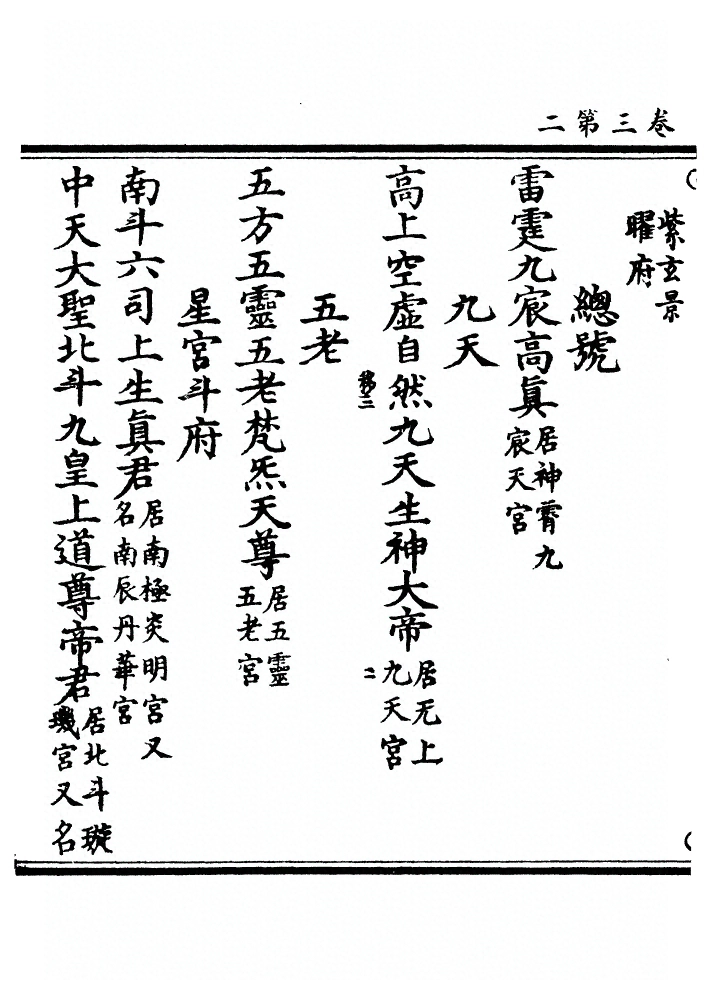 卷三第二
紫玄景
曜府
總號
雷霆九宸高眞居神霄九
宸天宮
九天
高上空虛自然九天生神大帝居无上
九天宮
移三
二
五老
五方五靈五老梵炁天尊居五靈
五老宮
星宮斗府
南斗六司上生眞君居南極炎明宮又
名南辰丹華宮
中天大聖北斗九皇上道尊帝君居北斗璇
璣宮又名